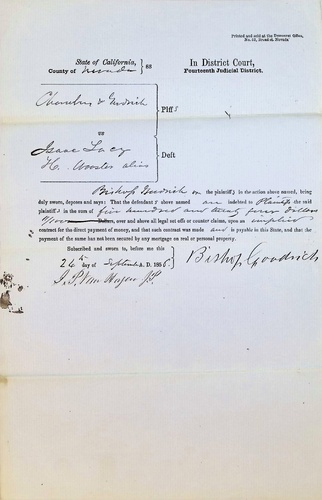 Printed and sold at the Democrat Office,
State of California, } ss
County of Nevada
In District Court,
Fourteenth Judicial District.
Chambers & Goodrich
Plffs
vs
Isaac Lacy
H. Wooster alias
Deft
Bishop Goodrich on the plaintiffs in the action above named, being
duly sworn, deposes and says: That the defendants above named are indebted to Plaintiffs the said
plaintiffs in the sum of five hundred and twenty four dollars
Dollars, over and above all legal set offs or counter claims, upon an implied
contract for the direct payment of money, and that such contract was made and is payable in this State, and that the
payment of the same has not been secured by any mortgage on real or personal property.
Subscribed and sworn to, before me this }
26th day of September A. D. 1856. }
Bishop Goodrich